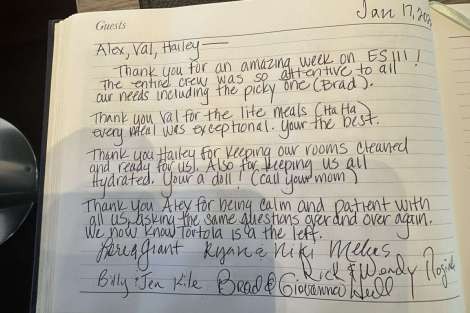 Jan 17, 
Guests
Alex, Val, Hailey —
Thank you for an amazing week on ES III!
The entire crew was so attentive to all
our needs including the picky one (Brad).
Thank you Val for the lite meals (HaHa)
every meal was exceptional. Your the best.
Thank you Hailey for keeping our rooms cleaned
and ready for us. Also for keeping us all
Hydrated. Your a doll! (call your mom)
Thank you Alex for being calm and patient with
all us, asking the same questions over and over again.
We now know Tortola is to the left.
Grant Ryan & Niki
Rick & Wendy
Billy + Jen Brad & Giovanna